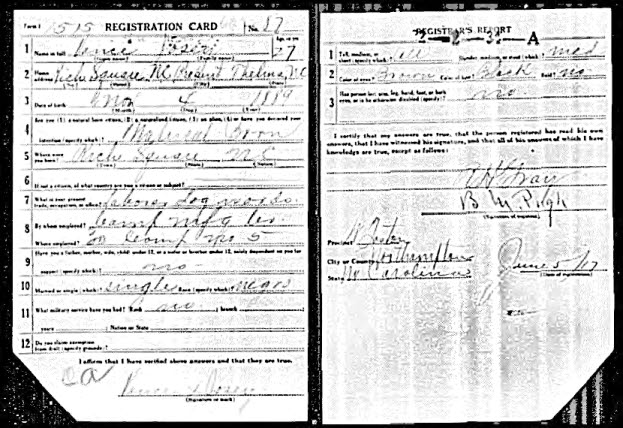 Form 1 515 REGISTRATION CARD No. 87
1 Name in full (Given name) (Family name) Age, in yrs. 27
2 Home address Rich Square N.C. Present Thelma, N.C.
(No.) (Street) (City) (State)
3 Date of birth Nov 4 1889
(Month) (Day) (Year)
4 Are you (1) a natural-born citizen, (2) a naturalized citizen, (3) an alien, (4) or have you declared your
intention (specify which)? Natural Born
5 Where were you born? Rich Square N.C.
(Town) (State) (Nation)
6 If not a citizen, of what country are you a citizen or subject?
7 What is your present trade, occupation, or office? Laborer Log woods
8 By whom employed? Camp Mfg Co.
Where employed? Camp No 5
9 Have you a father, mother, wife, child under 12, or a sister or brother under 12, solely dependent on you for
support (specify which)? no
10 Married or single (which)? single Race (specify which)? Negro
11 What military service have you had? Rank no branch
years Nation or State
12 Do you claim exemption from draft (specify grounds)?
I affirm that I have verified above answers and that they are true.
(Signature or mark)
REGISTRAR'S REPORT
2 - 2 - 3 - A
1 Tall, medium, or short (specify which)? Tall Slender, medium, or stout (which)? med
2 Color of eyes? Brown Color of hair? Black Bald? no
3 Has person lost arm, leg, hand, foot, or both eyes, or is he otherwise disabled (specify)? no
I certify that my answers are true, that the person registered has read his own
answers, that I have witnessed his signature, and that all of his answers of which I have
knowledge are true, except as follows:
(Signature of registrar)
Precinct
City or County Northampton
State N. Carolina June 5/17
(Date of registration)